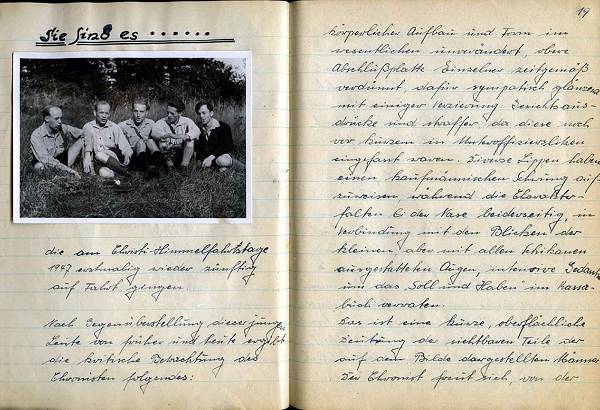 Sie sind es ......
die am Christi-Himmelfahrtstage
1947 erstmalig wieder zünftig
auf Fahrt gingen.
Nach Gegenüberstellung dieser jungen
Leute von früher und heute ergibt
die kritische Betrachtung des
Chronisten folgendes:
19
körperlicher Aufbau und Form im
wesentlichen unverändert, obere
Abschlußplatte Einzelner zeitgemäß
verdünnt dafür sympatisch glänzend
mit einiger Verzierung. Gesichtsaus-
drücke und straffer, da diese noch
vor kurzem in Unteroffizierslitzen
eingefasst waren. Diverse Lippen haben
einen kaufmännischen Schwung auf-
zuweisen, während die Charakter-
falten b. der Nase beiderseitig, in
Verbindung mit den Blicken der
kleinen, aber mit allen Schikanen
ausgestatteten Augen, intensive Gedanken
um das "Soll und Haben" im Kassa-
buch verraten.
Das ist eine kurze, oberflächliche
Deutung der sichtbaren Teile der
auf dem Bilde dargestellten Männer
Der Chronist freut sich, von der